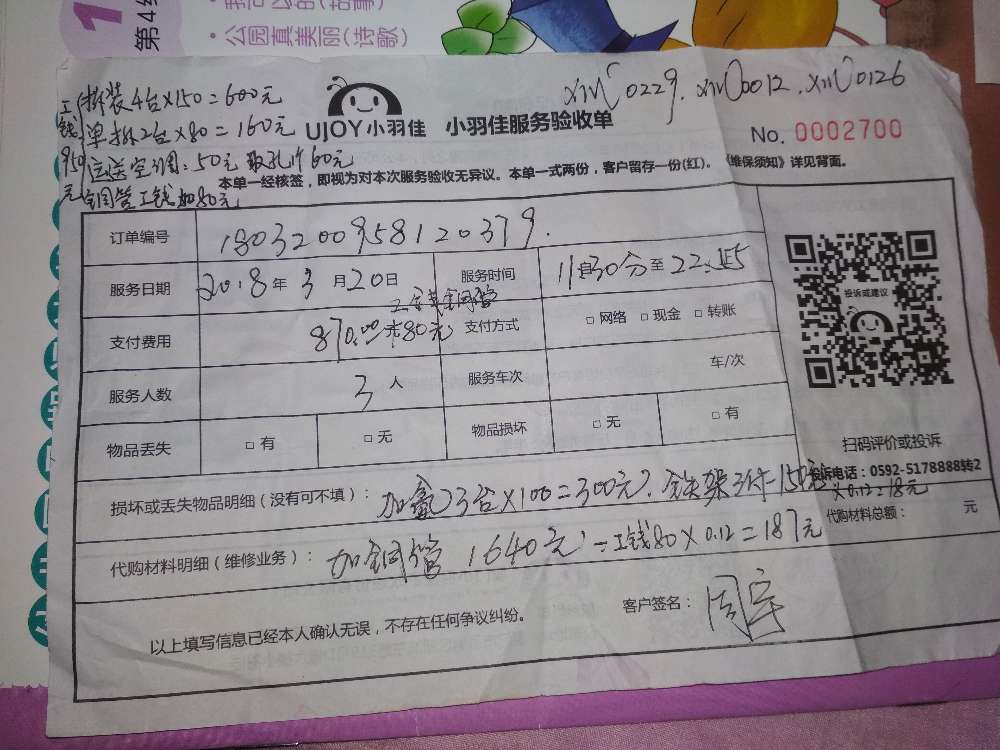 第4
公园真美丽(诗歌)
拆装4台×150=600元
单拆2台×80=160元
运送空调:50元 取孔1个60元
铜管工钱加80元
工钱950元
XM0229. XM0012. XM0126
UJOY小羽佳 小羽佳服务验收单
No. 0002700
本单一经核签,即视为对本次服务验收无异议。本单一式两份,客户留存一份(红)。《维保须知》详见背面。
订单编号 1803200958120379.
服务日期 2018年3月20日 服务时间 11时30分至22:45
工钱其中铜管
支付费用 870.00+80元 支付方式 □网络 □现金 □转账
服务人数 3人 服务车次 车/次
物品丢失 □有 □无 物品损坏 □无 □有
投诉或建议
扫码评价或投诉
投诉电话:0592-5178888转2
损坏或丢失物品明细(没有可不填): 加氟3台×100=300元. 铁架3付-150元
×0.12=18元
代购材料总额: 元
代购材料明细(维修业务): 加铜管 1640元-工钱80×0.12=187元
客户签名: 周宇
以上填写信息已经本人确认无误,不存在任何争议纠纷。